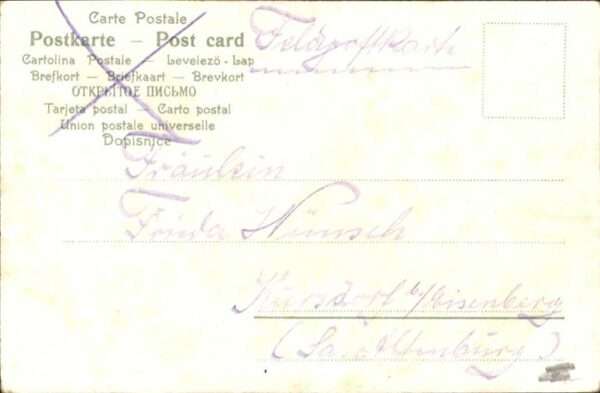 Carte Postale
Postkarte — Post card
Cartolina Postale — Levelező-Lap
Brefkort — Briefkaart — Brevkort
ОТКРЫТОЕ ПИСЬМО
Tarjeta postal — Carto postal
Union postale universelle
Dopisnice
Feldpostkarte
Fräulein
Frieda Wünsch
Kursdorf b/Eisenberg
(Sa. Altenburg)